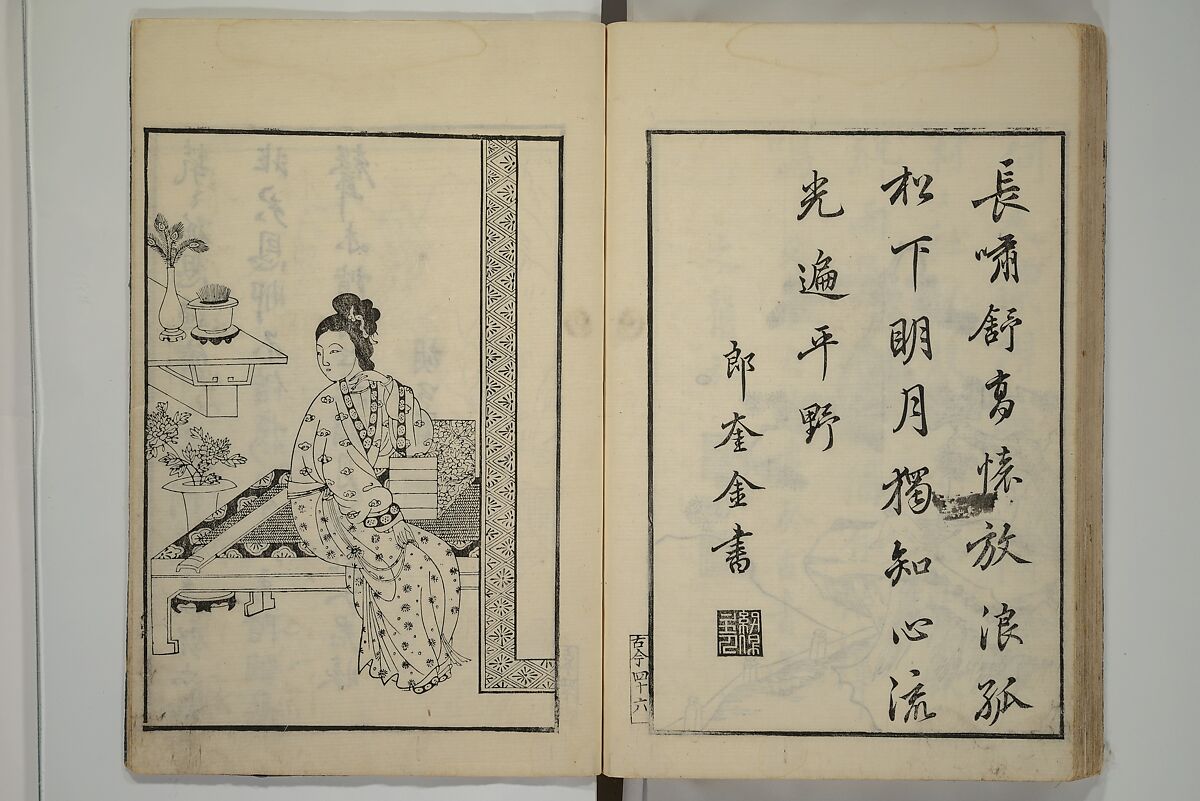 長嘯舒高懷放浪孤
松下明月獨知心流
光遍平野
郎奎金書
古今四十六